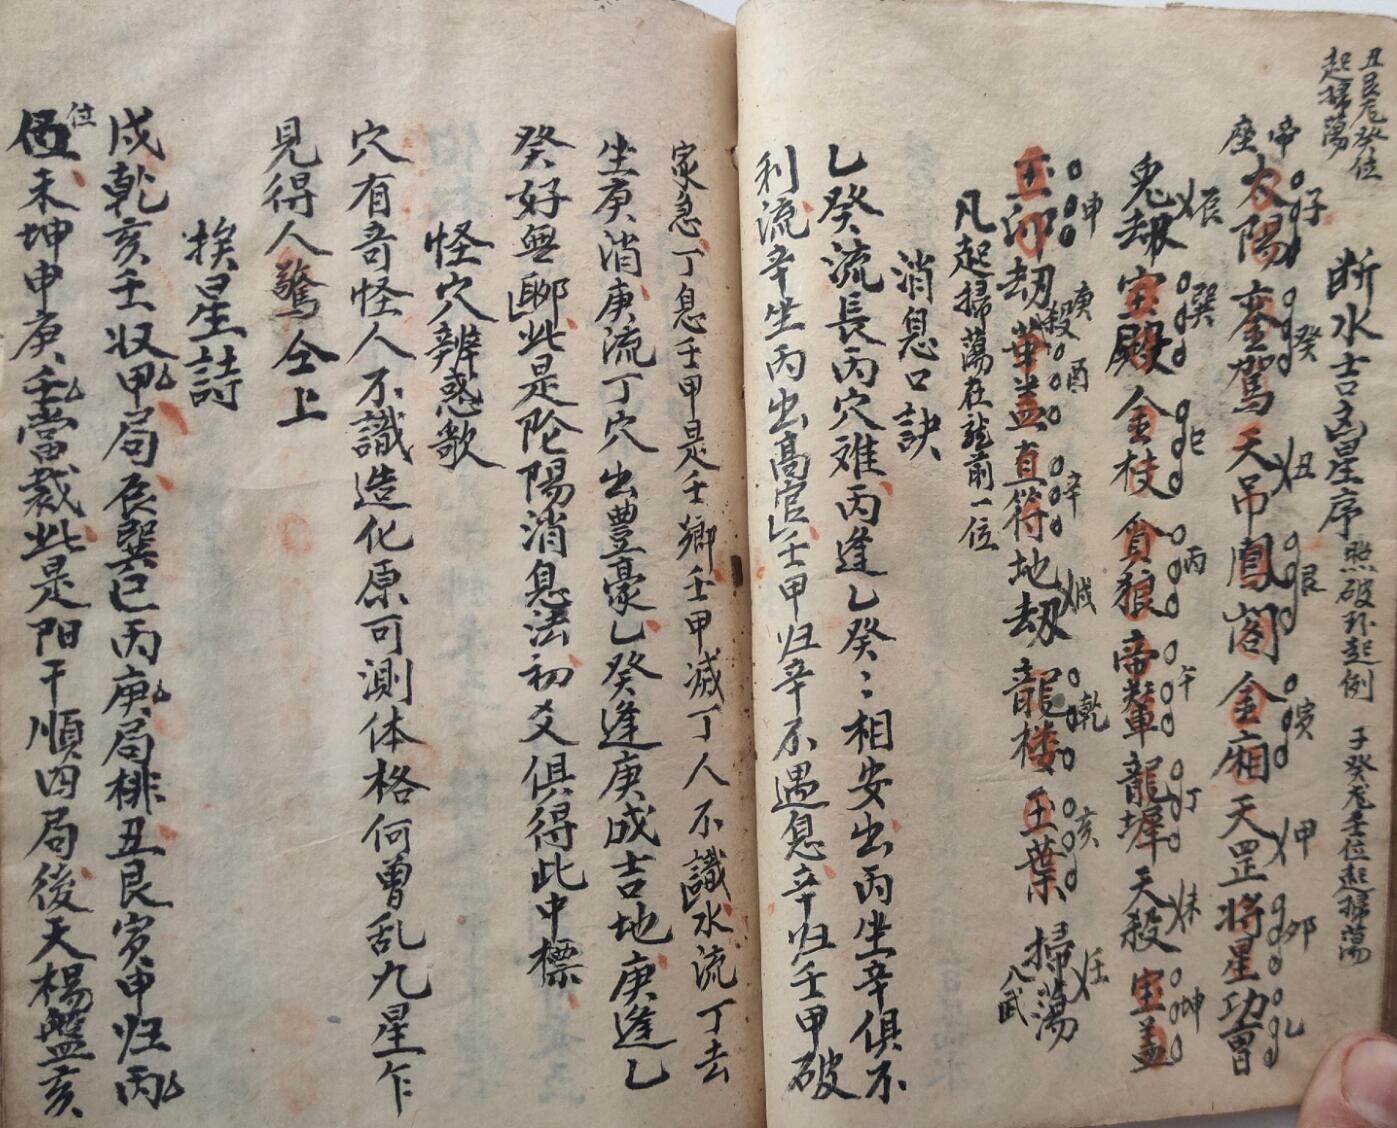 丑艮龙癸位
起掃蕩
断水吉凶星序 照破环起例 子癸龙壬位起掃蕩
帝座
太陽 子
銮駕 癸
天吊 丑
鳳阁 艮
金厢 寅
天罡 甲
将星 卯
功曹 乙
鬼劫 辰
宝殿 巽
金枝 巳
貪狼 丙
帝輦 午
龍墀 丁
天殺 未
宝盖 坤
玉印 申
劫殺 庚
華盖 酉
直符 辛
地劫 戌
龍楼 乾
玉葉 亥
掃蕩 壬
八武
凡起掃蕩在龍前一位
消息口訣
乙癸流長丙穴难丙逢乙癸〻相安出丙坐辛俱不
利流辛坐丙出高官壬甲归辛不遇息辛归壬甲破
家急丁息壬甲是壬鄉壬甲滅丁人不識水流丁去
坐庚消庚流丁穴出豊豪乙癸逢庚成吉地庚逢乙
癸好無郰此是陰陽消息法初爻俱得此中標
怪穴辨惑歌
穴有奇怪人不識造化原可測体格何曽乱九星乍
見得人驚仝上
挨星詩
戍乾亥壬収甲局辰巽巳丙庚局排丑艮寅甲归丙
位未坤申庚壬當裁此是阳干順四局後天楊盤亥